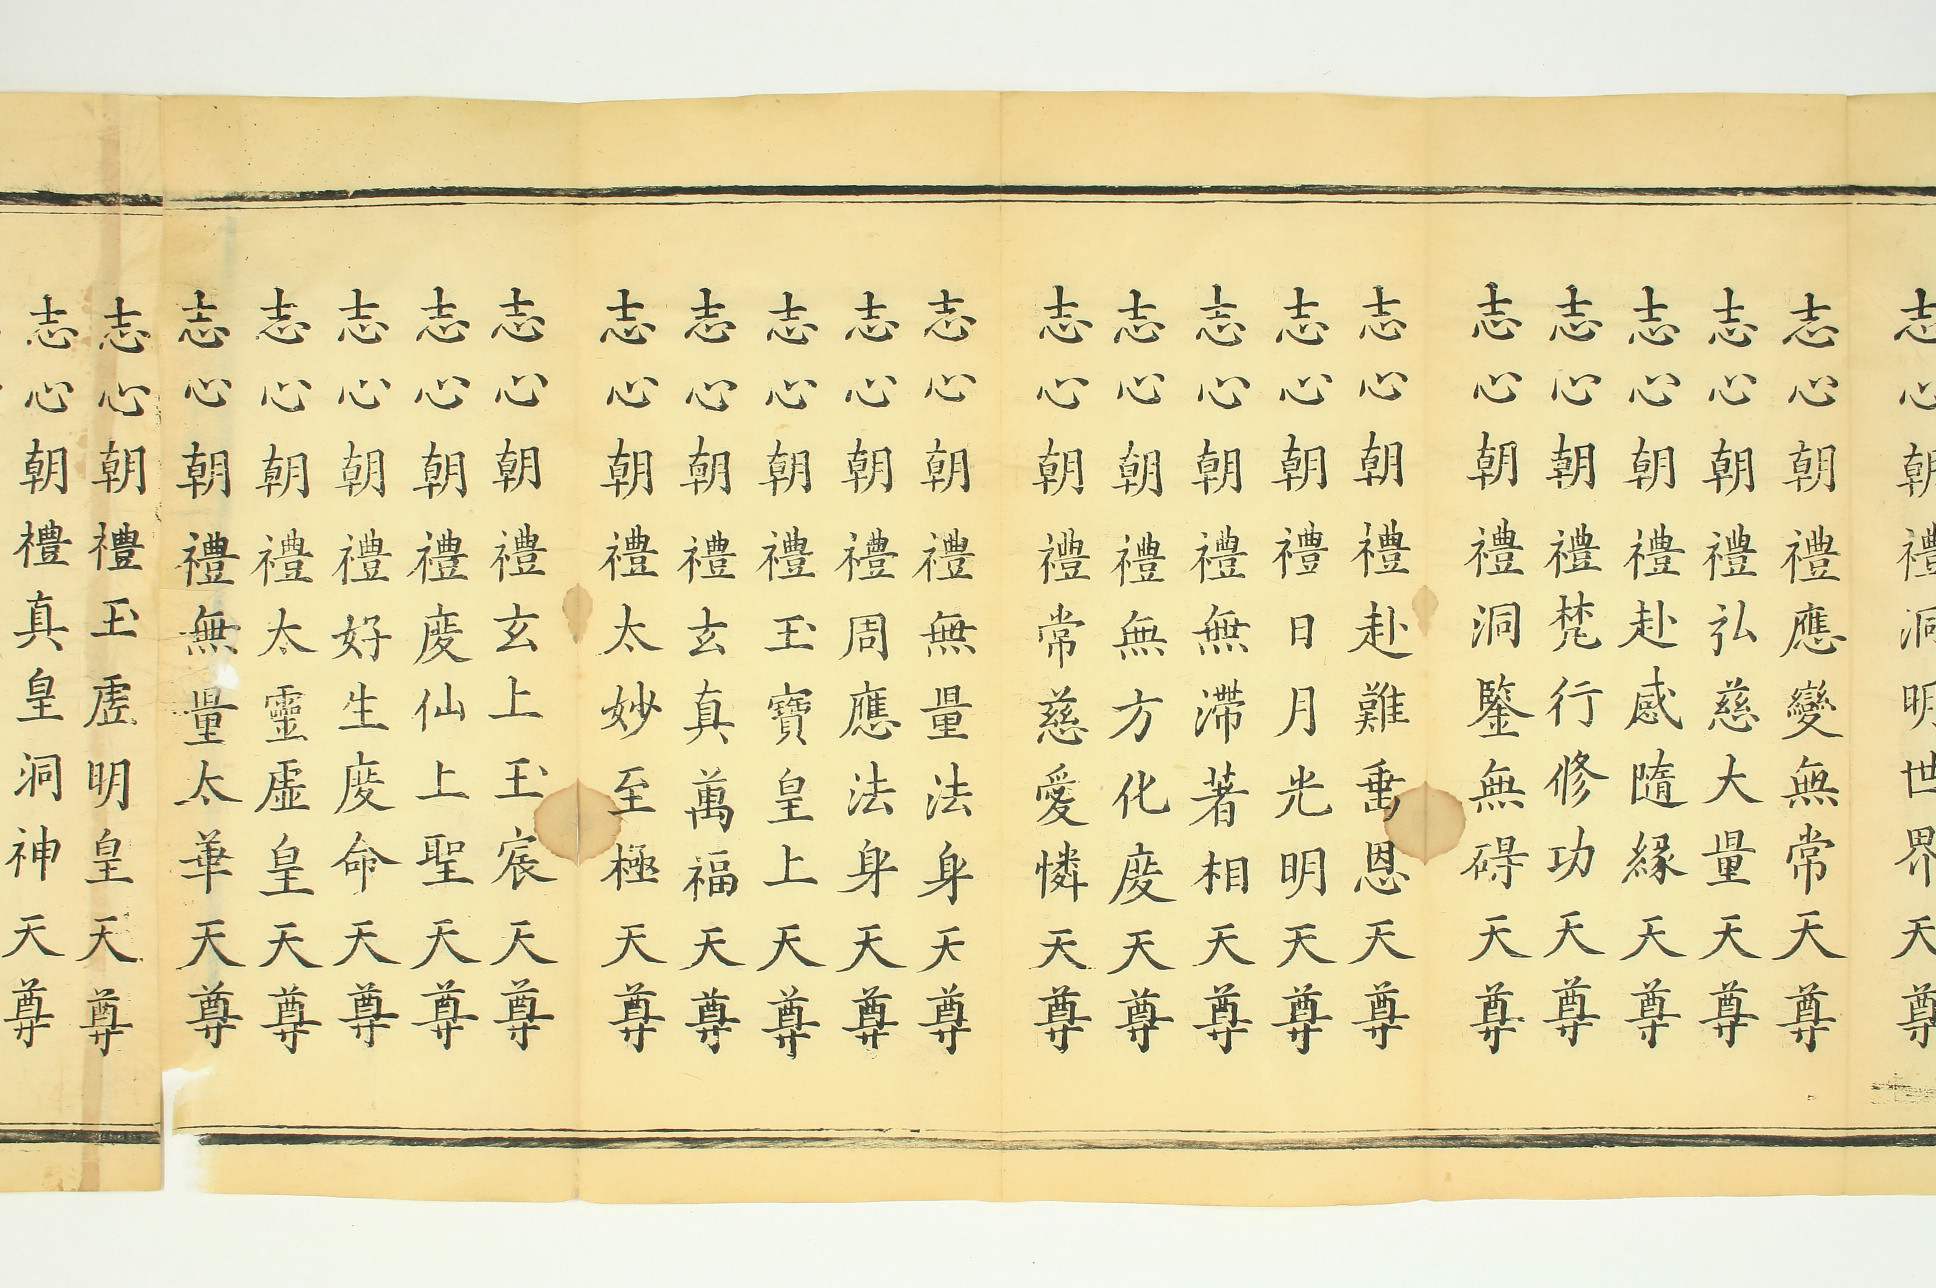 志心朝禮洞明世界天尊
志心朝禮應變無常天尊
志心朝禮弘慈大量天尊
志心朝禮赴感隨緣天尊
志心朝禮梵行修功天尊
志心朝禮洞鑒無碍天尊
志心朝禮赴難垂恩天尊
志心朝禮日月光明天尊
志心朝禮無滯著相天尊
志心朝禮無方化度天尊
志心朝禮常慈愛憐天尊
志心朝禮無量法身天尊
志心朝禮周應法身天尊
志心朝禮玉寶皇上天尊
志心朝禮玄真萬福天尊
志心朝禮太妙至極天尊
志心朝禮玄上玉宸天尊
志心朝禮度仙上聖天尊
志心朝禮好生度命天尊
志心朝禮太靈虛皇天尊
志心朝禮無量太華天尊
志心朝禮玉虛明皇天尊
志心朝禮真皇洞神天尊